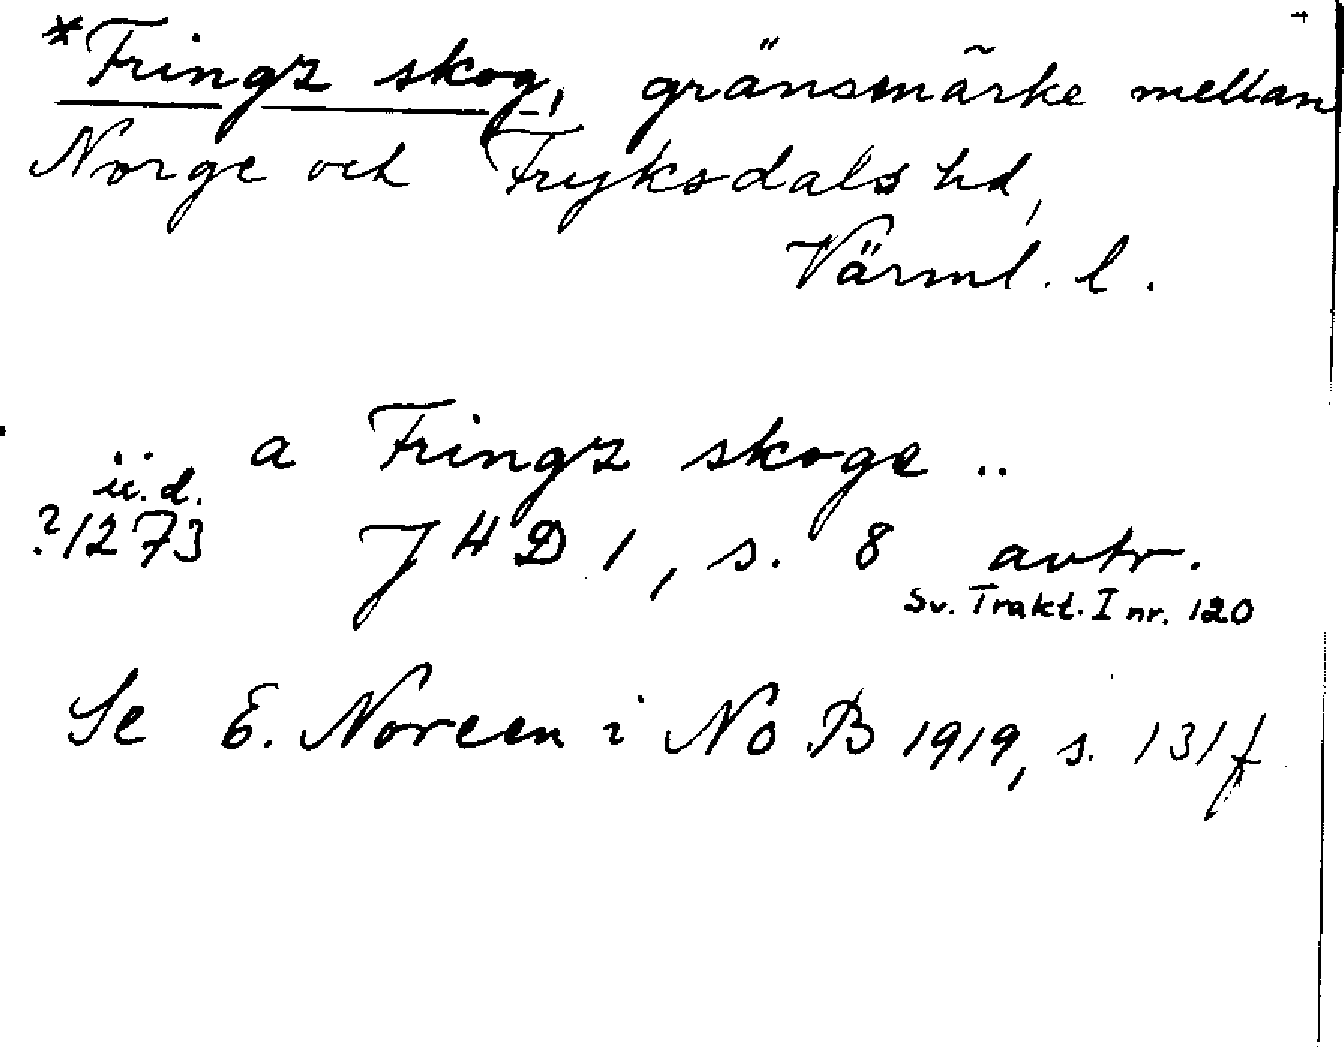 *Fringz skog, gränsmärke mellan
Norge och Fryksdals hd,
Värml. l.
.. a Fringz skoge ..
u.d.
?1273 J H D 1, s. 8 avtr.
Sv. Trakt. I nr. 120
Se E. Noreen i NoB 1919, s. 131 f